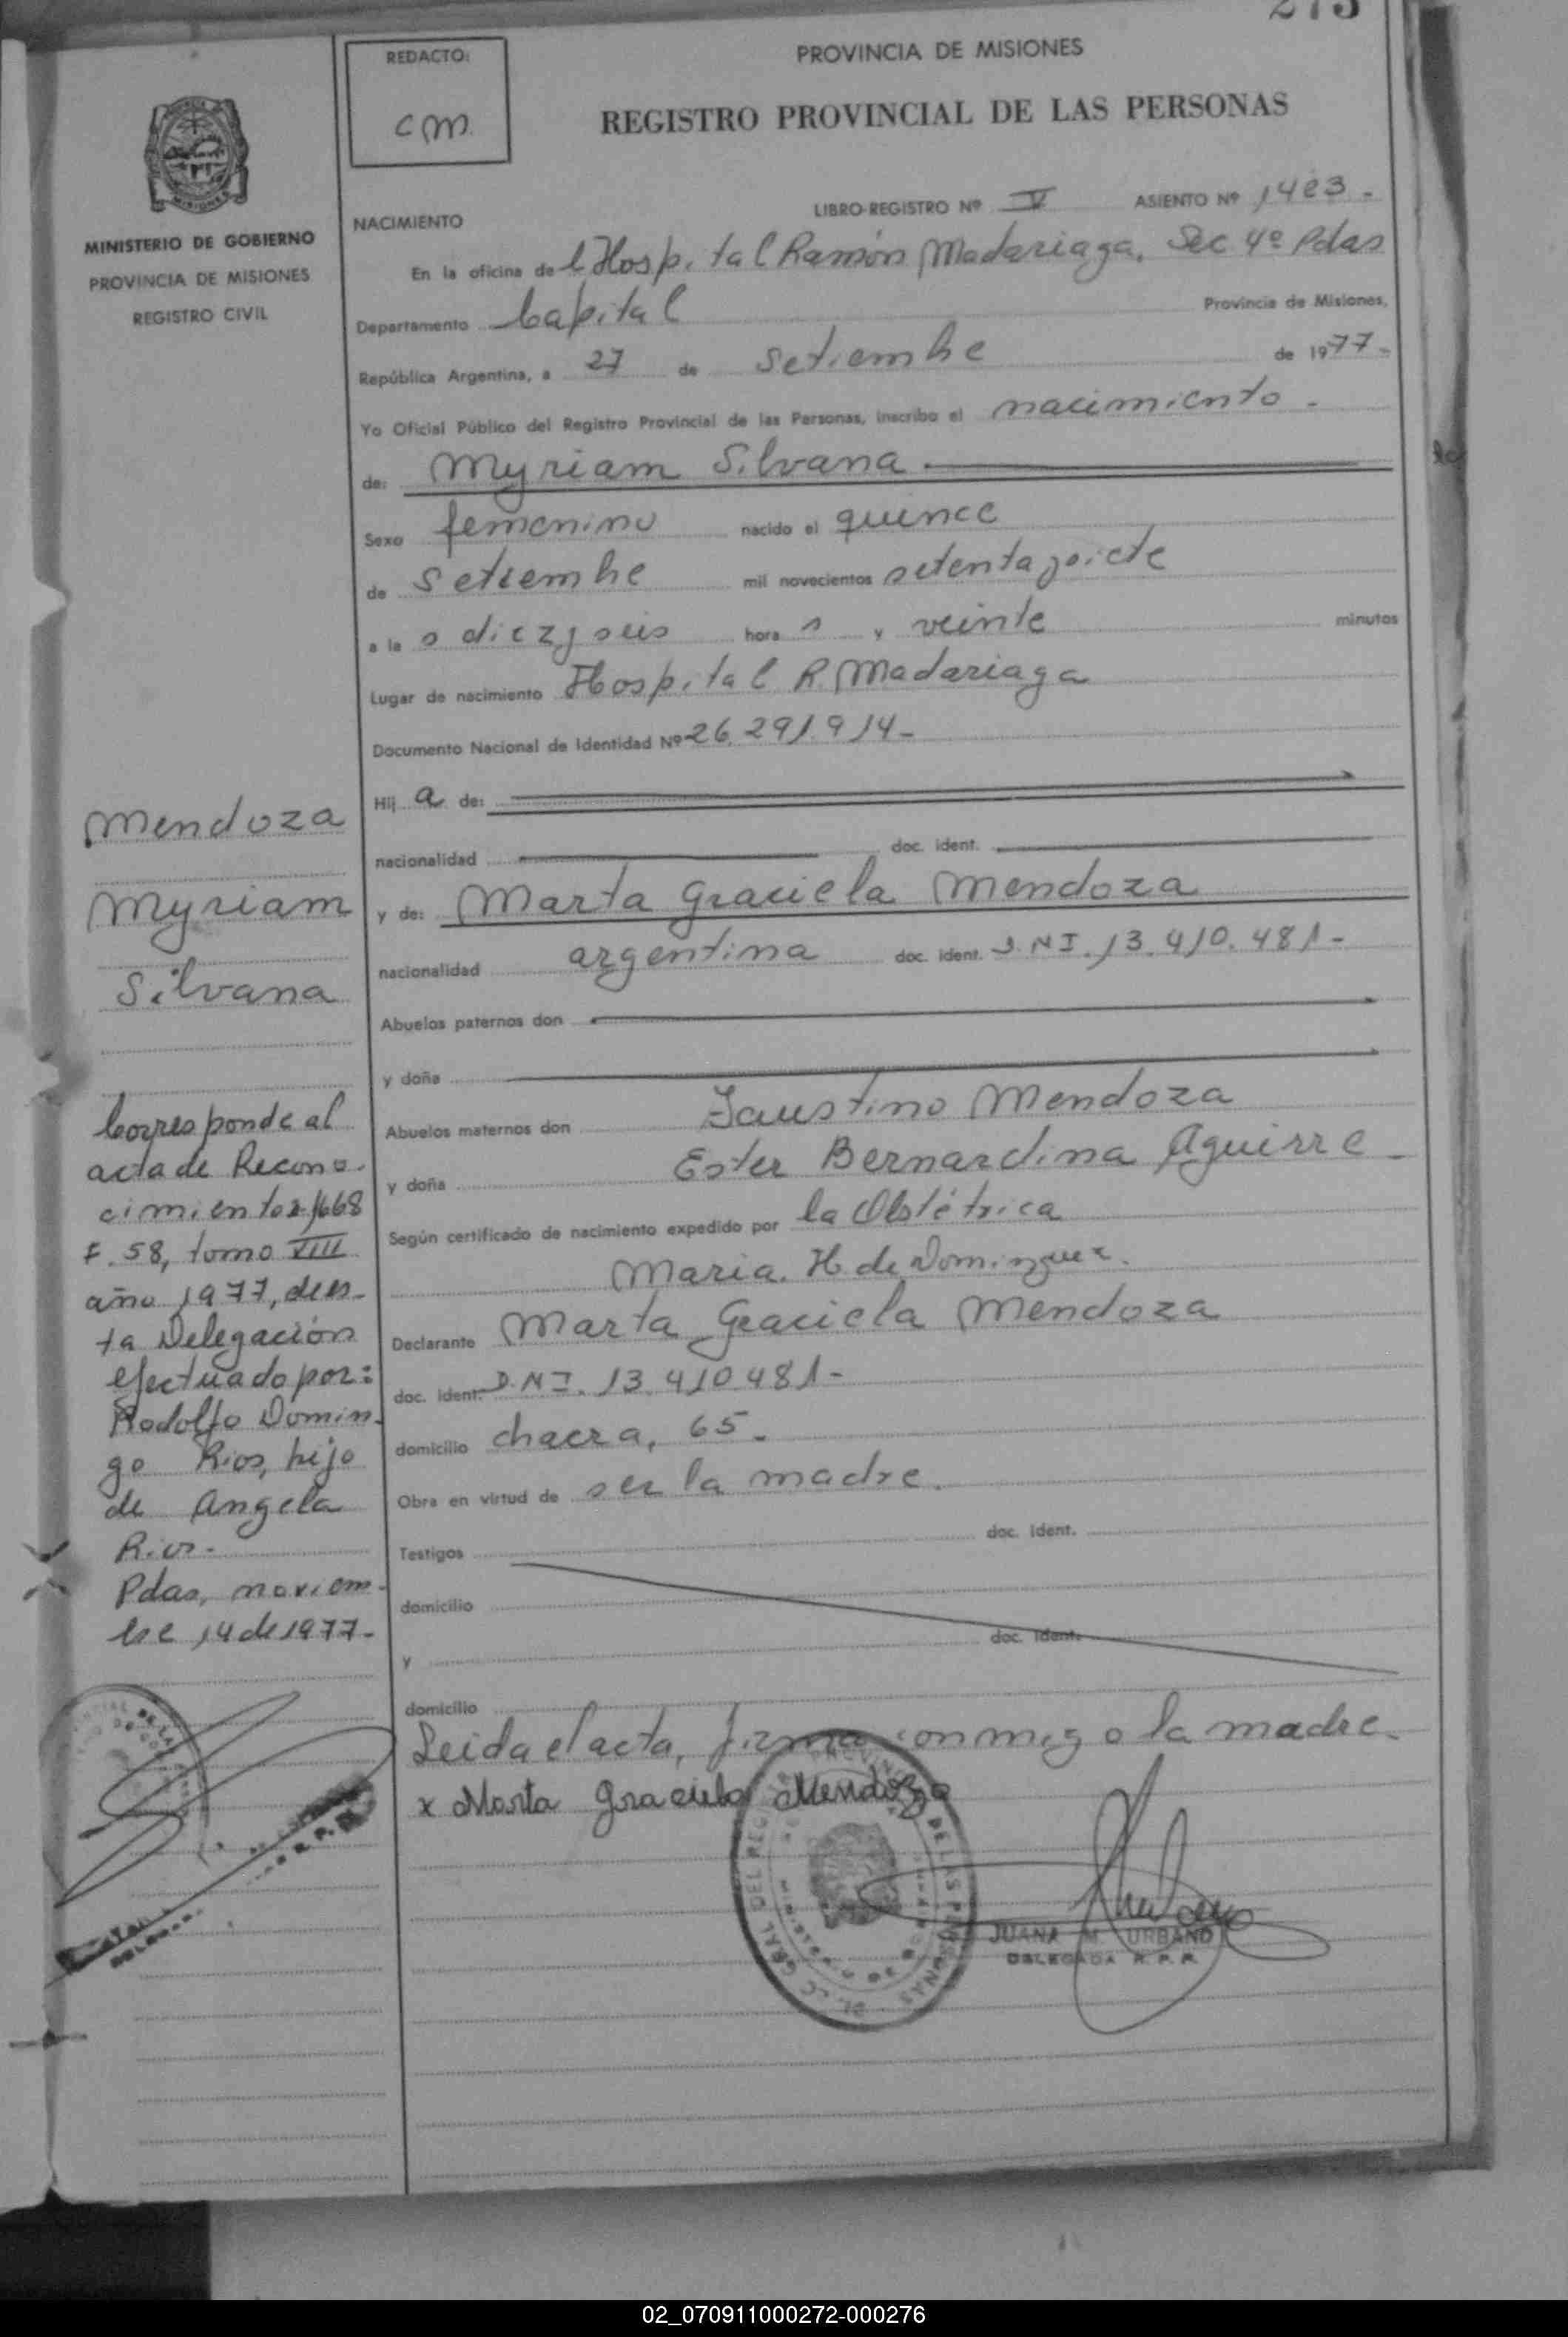 273
REDACTO:
cm.
PROVINCIA DE MISIONES
REGISTRO PROVINCIAL DE LAS PERSONAS
MISIONES
MINISTERIO DE GOBIERNO
PROVINCIA DE MISIONES
REGISTRO CIVIL
NACIMIENTO
LIBRO-REGISTRO Nº IV ASIENTO Nº 1423.-
En la oficina del Hospital Ramón Madariaga, Sec 4º Pdas
Departamento Capital Provincia de Misiones,
República Argentina, a 27 de Setiembre de 1977-
Yo Oficial Público del Registro Provincial de las Personas, inscribo el nacimiento.
de: Myriam Silvana.
Sexo femenino nacido el quince
de Setiembre mil novecientos setenta y siete
a la s diez y seis hora s y veinte minutos
Lugar de nacimiento Hospital R. Madariaga
Documento Nacional de Identidad Nº 26.291.914-
Hij a de:
nacionalidad doc. ident.
y de: Marta Graciela Mendoza
nacionalidad argentina doc. ident. D.N.I. 13.410.481-
Abuelos paternos don
y doña
Abuelos maternos don Faustino Mendoza
y doña Ester Bernardina Aguirre
Según certificado de nacimiento expedido por la Obstétrica
Maria. H de Dominguez.
Declarante Marta Graciela Mendoza
doc. ident. D.N.I. 13.410.481-
domicilio chacra, 65.
Obra en virtud de ser la madre.
Testigos doc. ident.
domicilio
y doc. ident.
domicilio
Leida el acta, firma conmigo la madre.
x Marta Graciela Mendoza
JUANA M. URBANO
DELEGADA R. P. P.
Mendoza
Myriam
Silvana
Corresponde al
acta de Recono-
cimiento 1668
F. 58, tomo VIII
año 1977, de es-
ta Delegación
efectuado por:
Rodolfo Domin-
go Rios, hijo
de Angela
Rios.
Pdas, noviem-
bre 14 de 1977-
02_070911000272-000276